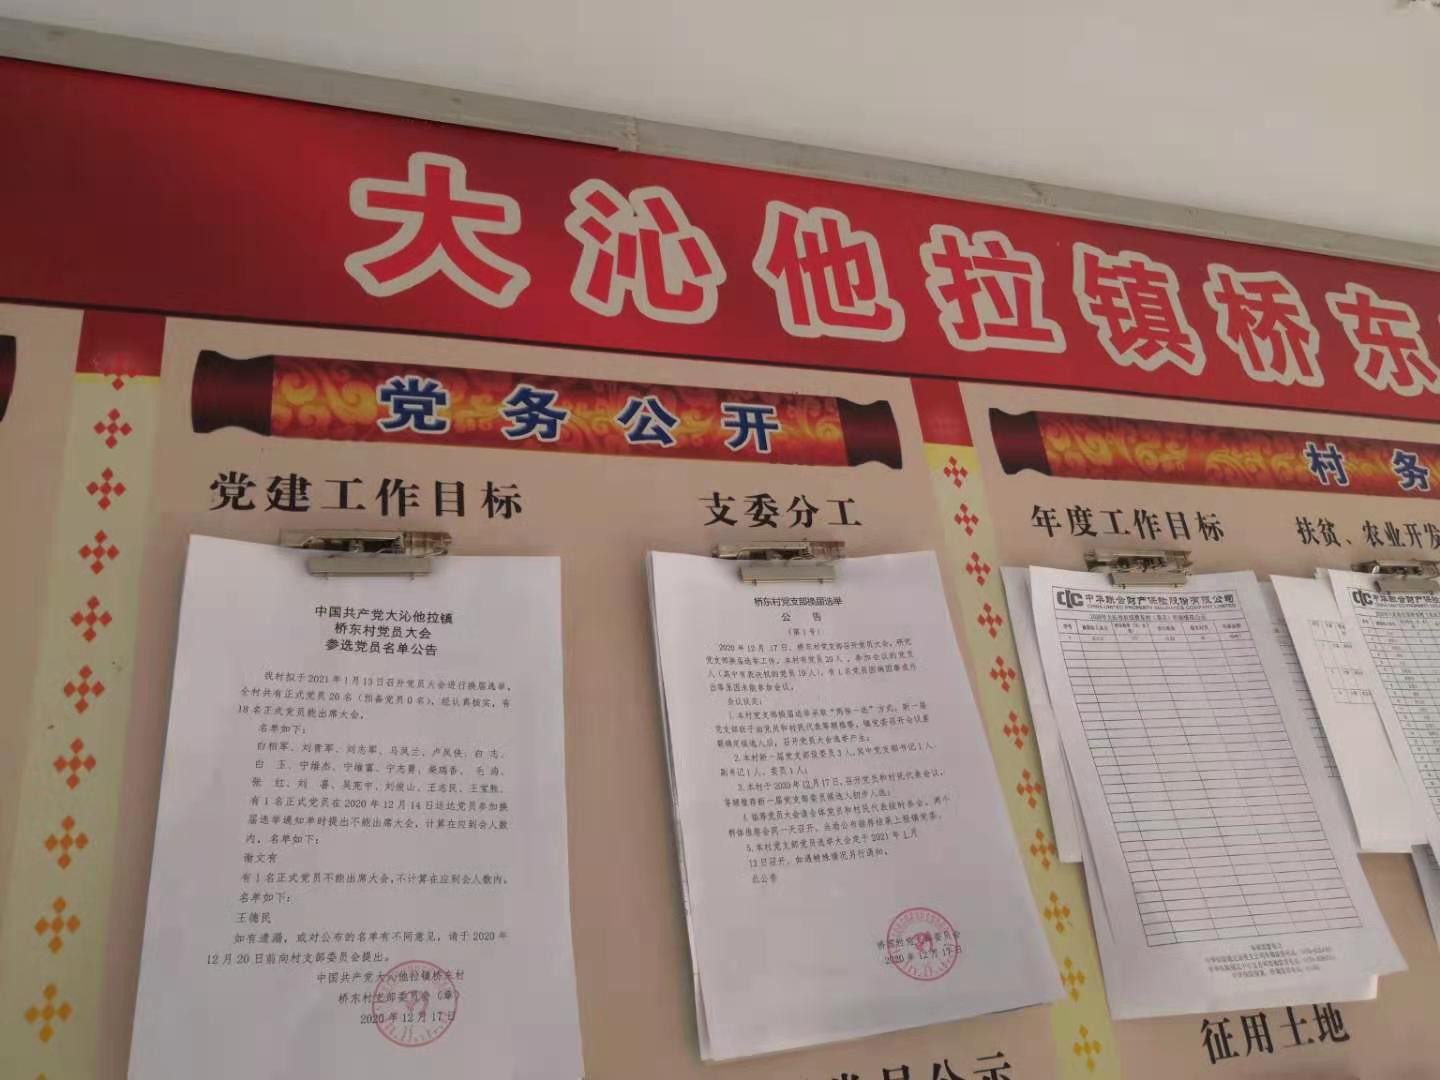 大沁他拉镇桥东
党务公开
村务
党建工作目标
支委分工
年度工作目标
扶贫、农业开发
中国共产党大沁他拉镇
桥东村党员大会
参选党员名单公告
我村拟于2021年1月13日召开党员大会进行换届选举，
全村共有正式党员20名（预备党员0名），经认真核实，有
18名正式党员能出席大会。
名单如下：
白相军、刘青军、刘志军、马凤兰、卢凤侠、白 志、
白 玉、宁维杰、宁维富、宁志勇、秦瑞香、毛 海、
张 红、刘 喜、吴宪中、刘俊山、王志民、王宝胜、
有1名正式党员在2020年12月14日送达党员参加换
届选举通知单时提出不能出席大会，计算在应到会人数
内，名单如下：
谢文有
有1名正式党员不能出席大会，不计算在应到会人数内，
名单如下：
王德民
如有遗漏，或对公布的名单有不同意见，请于2020年
12月20日前向村支部委员会提出。
中国共产党大沁他拉镇桥东村
桥东村支部委员会（章）
2020年12月17日
桥东村党支部换届选举
公 告
（第1号）
2020年12月17日，桥东村党支部召开党员大会，研究
党支部换届选举工作。本村有党员20人，参加会议的党员
人（其中有表决权的党员19人），有1名党员因病因事或外
出等原因未能参加会议。
会议议定：
1.本村党支部换届选举采取“两推一选”方式。新一届
党支部班子由党员和村民代表等额推荐，镇党委召开会议差
额确定候选人后，召开党员大会选举产生；
2.本村新一届党支部设委员3人，其中党支部书记1人，
副书记1人，委员1人；
3.本村于2020年12月17日，召开党员和村民代表会议，
等额推荐新一届党支部委员候选人初步人选；
4.推荐党员大会请全体党员和村民代表按时参会，两个
群体推荐会同一天召开，当场公布推荐结果上报镇党委。
5.本村党支部党员选举大会定于2021年1月
13日召开，如遇特殊情况另行通知。
此公告
桥东村党支部委员会
2020年12月17日
中华联合财产保险股份有限公司
CHINA UNITED PROPERTY INSURANCE COMPANY LIMITED
中华联合财产保险
征用土地
党员公示